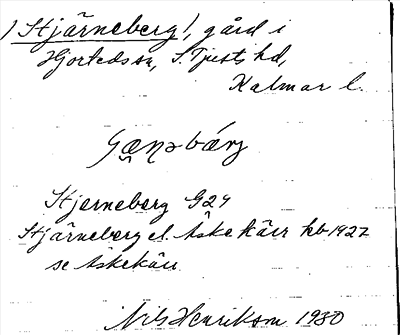 ) Stjärneberg!, gård i
Hjorteds sn, S. Tjust hd,
Kalmar l.
Stjerneberg G24
Stjärneberg el. Äskekärr kb 1927
se Äskekärr
Nils Henriksson 1930